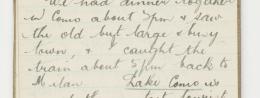 We had dinner together
in Como about 5pm & saw
the old but large & busy
town, & caught the
train about 5pm back to
Milan. Lake Como is
tourist